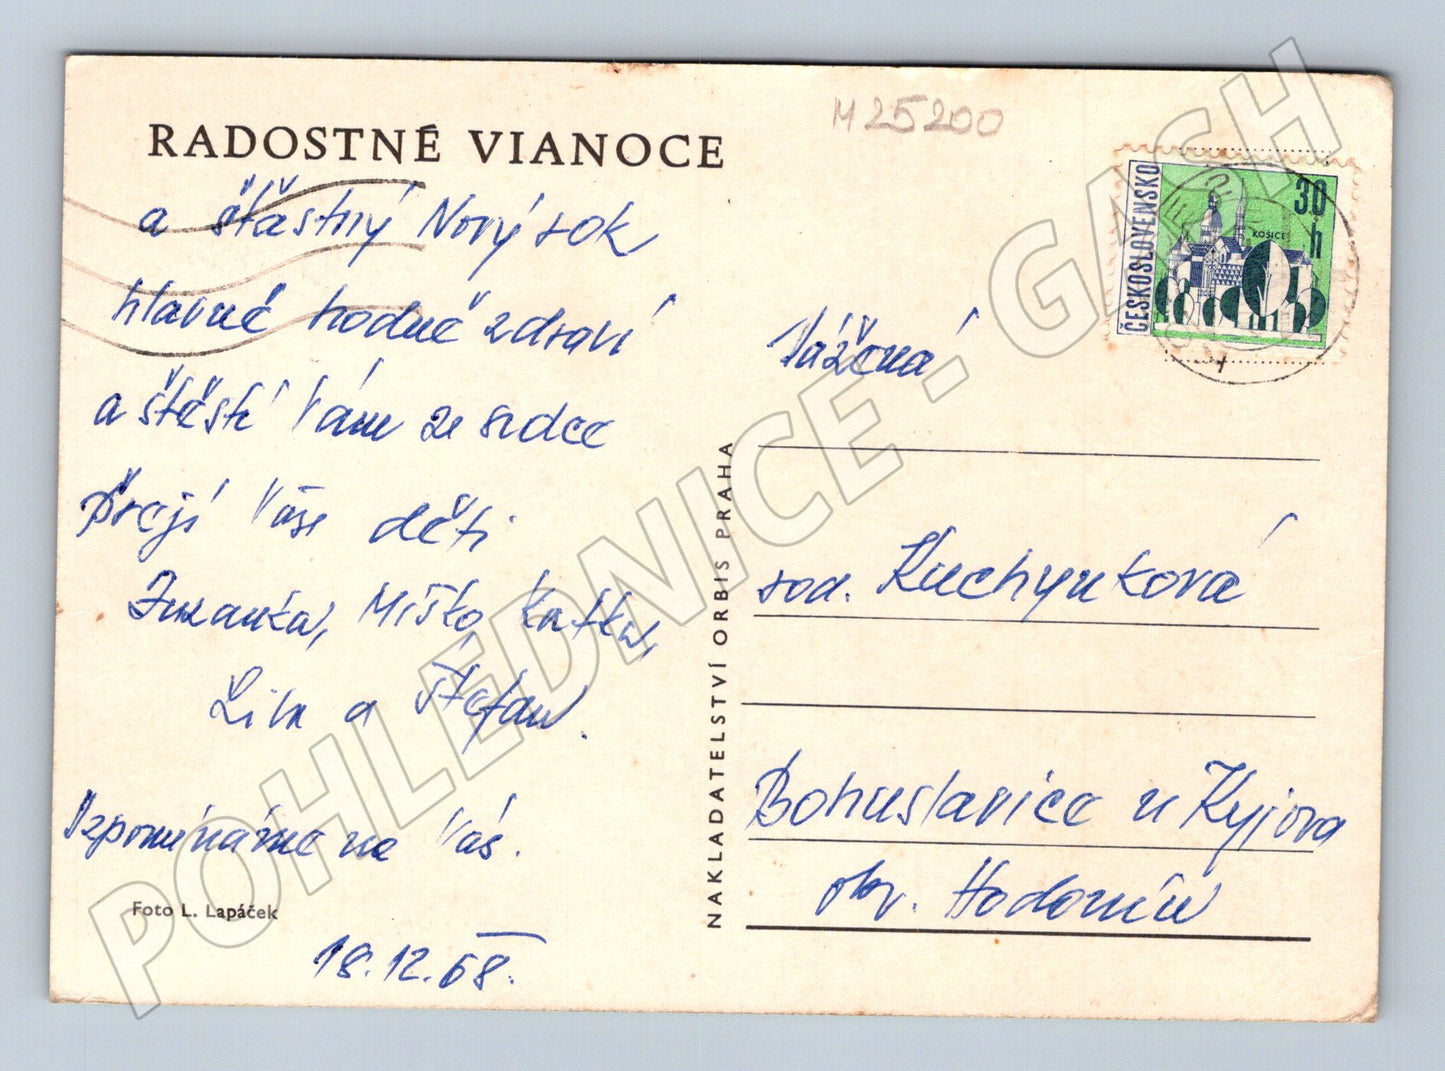 M 25200
RADOSTNÉ VIANOCE
a šťastný Nový rok
hlavně hodně zdraví
a štěstí Vám ze srdce
přejí Vaše děti
Zuzanka, Mišťo, Katka,
Lila a Štefan.
Vzpomínáme na Vás.
Foto L. Lapáček
18.12.68.
NAKLADATELSTVÍ ORBIS PRAHA
ČESKOSLOVENSKO
30 h
KOŠICE
Vážená
rod. Kuchyňková
Bohuslavice u Kyjova
okr. Hodonín
POHLEDNICE - GASH